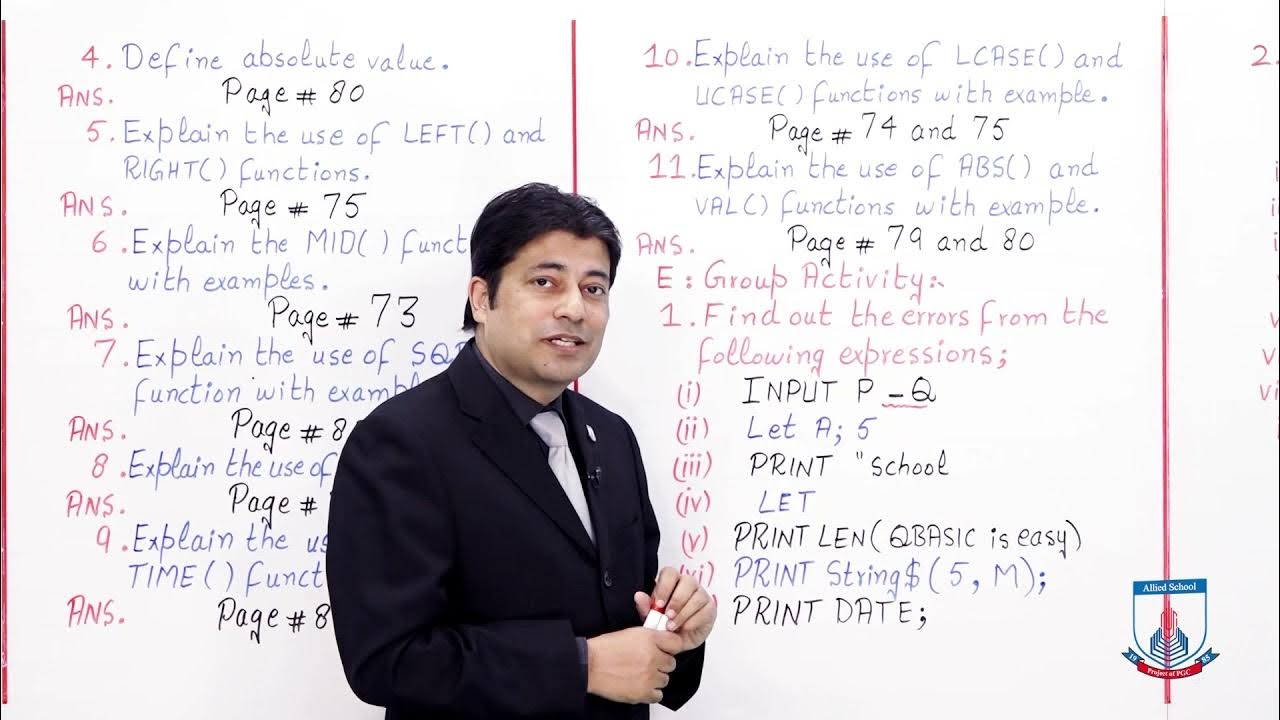 4. Define absolute value.
ANS. Page # 80
5. Explain the use of LEFT() and
RIGHT() functions.
ANS. Page # 75
6. Explain the MID() funct
with examples.
ANS. Page # 73
7. Explain the use of
function with
ANS. Page #
8. Explain the use of
ANS. Page #
9. Explain the
TIME() funct
ANS. Page #
10. Explain the use of LCASE() and
UCASE() functions with example.
ANS. Page # 74 and 75
11. Explain the use of ABS() and
VAL() functions with example.
ANS. Page # 79 and 80
E: Group Activity:-
1. Find out the errors from the
following expressions;
(i) INPUT P - Q
(ii) Let A; 5
(iii) PRINT "School
(iv) LET
(v) PRINT LEN(QBASIC is easy)
(vi) PRINT String$(5, M);
PRINT DATE;
2.
Allied School
19 85
Project of PGC